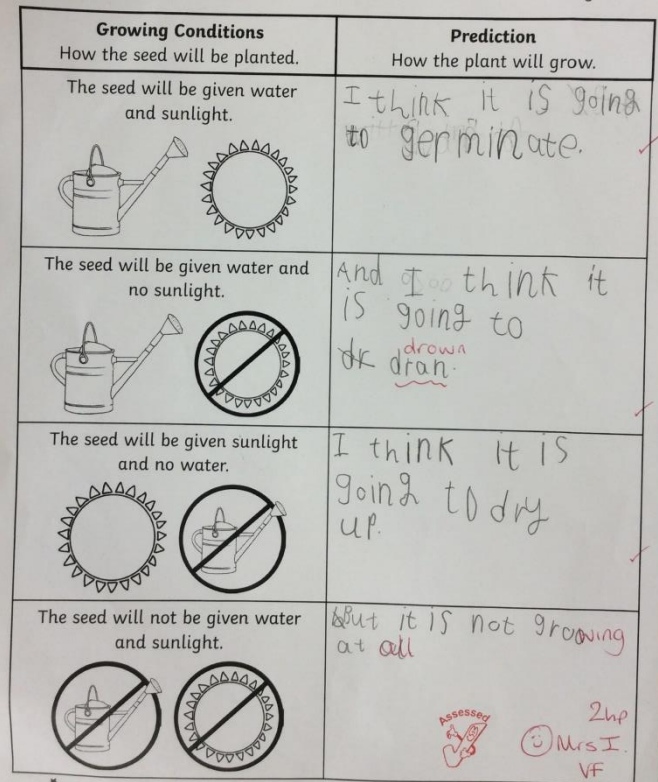 Growing Conditions
How the seed will be planted.
Prediction
How the plant will grow.
The seed will be given water
and sunlight.
I think it is going
to germinate.
The seed will be given water and
no sunlight.
And I think it
is going to
drown
dran.
The seed will be given sunlight
and no water.
I think it is
going to dry
up.
The seed will not be given water
and sunlight.
But it is not growing
at all
Assessed
2hp
Mrs I.
VF